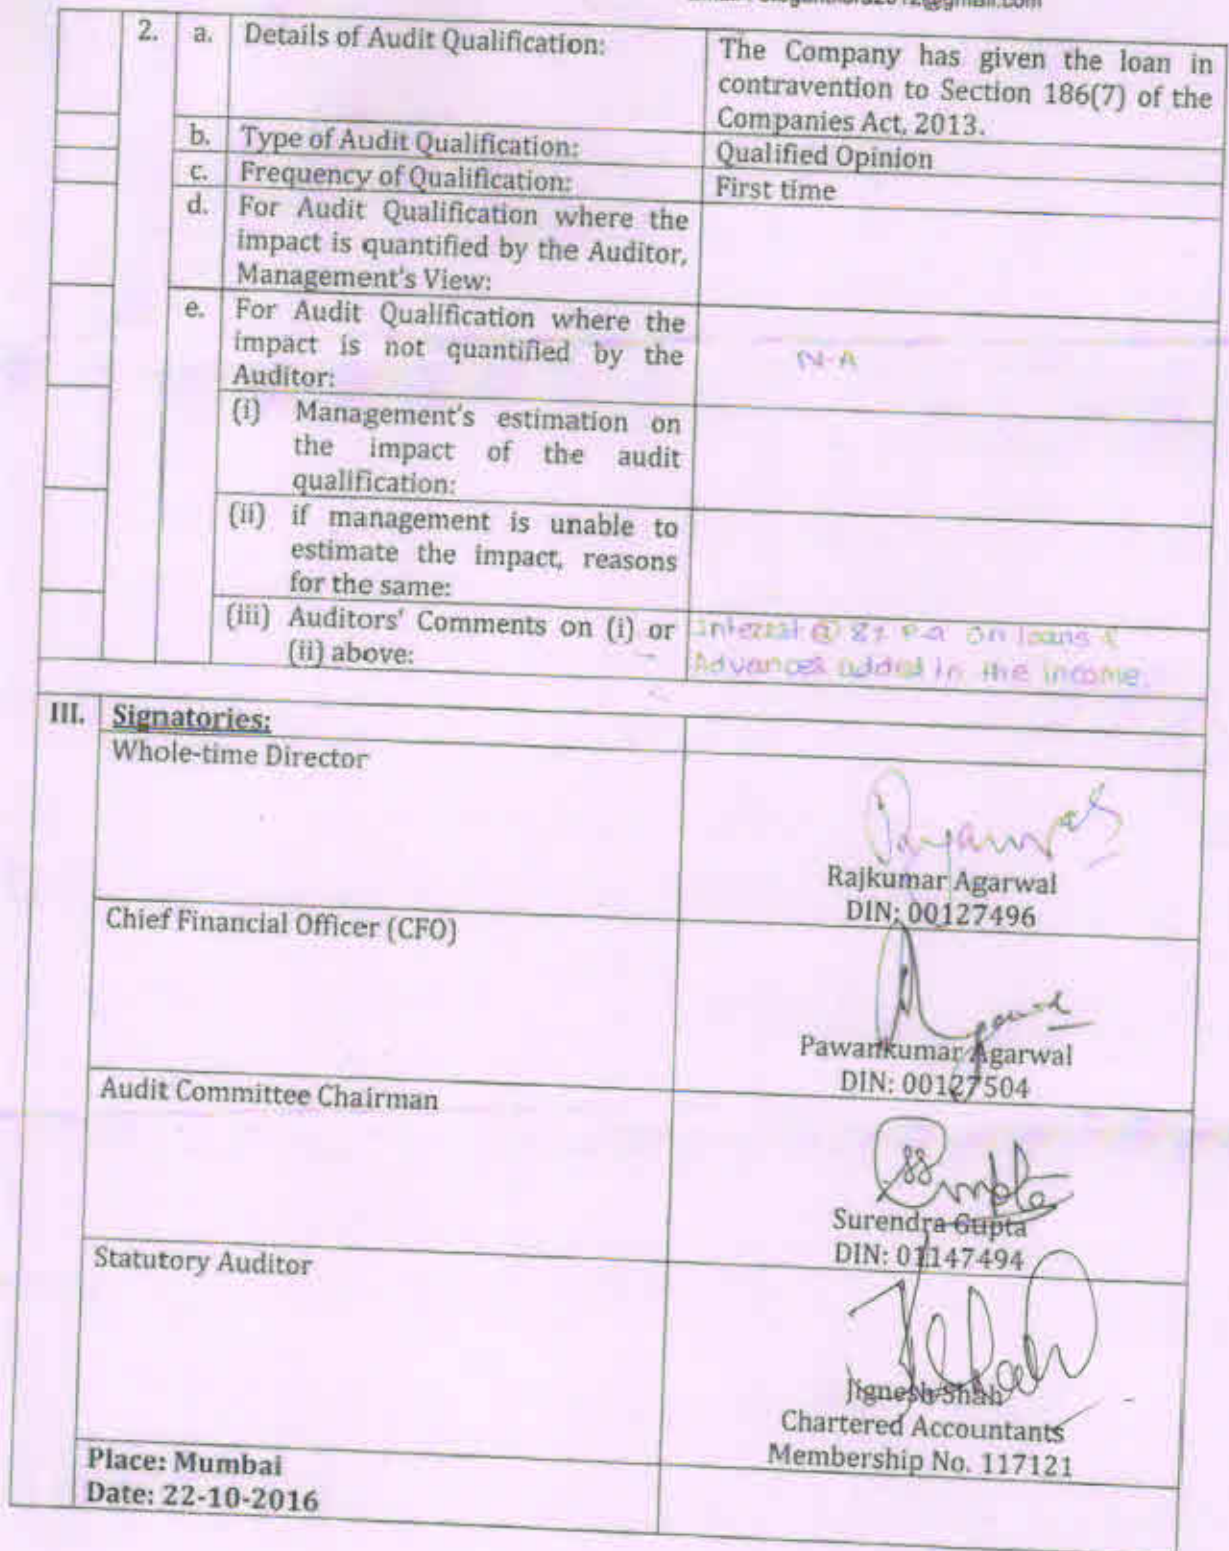 2. a. Details of Audit Qualification: The Company has given the loan in
contravention to Section 186(7) of the
Companies Act, 2013.
b. Type of Audit Qualification: Qualified Opinion
c. Frequency of Qualification: First time
d. For Audit Qualification where the
impact is quantified by the Auditor,
Management's View:
e. For Audit Qualification where the
impact is not quantified by the
Auditor:
N-A
(i) Management's estimation on
the impact of the audit
qualification:
(ii) if management is unable to
estimate the impact, reasons
for the same:
(iii) Auditors' Comments on (i) or
(ii) above:
Interest @ 8% P.a on loans &
Advances added in the income.
III. Signatories:
Whole-time Director
Rajkumar Agarwal
DIN: 00127496
Chief Financial Officer (CFO)
Pawankumar Agarwal
DIN: 00127504
Audit Committee Chairman
Surendra Gupta
DIN: 01147494
Statutory Auditor
Jignesh Shah
Chartered Accountants
Membership No. 117121
Place: Mumbai
Date: 22-10-2016